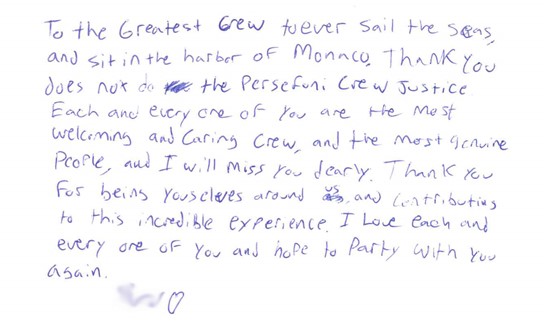 To the Greatest Crew to ever sail the seas,
and sit in the harbor of Monaco, Thank you
does not do the Persefoni Crew Justice
Each and every one of you are the most
welcoming and Caring Crew, and the most genuine
People, and I will miss you dearly. Thank you
for being youselves around us, and contributing
to this incredible experience. I Love each and
every one of you and hope to Party with you
again.
♡